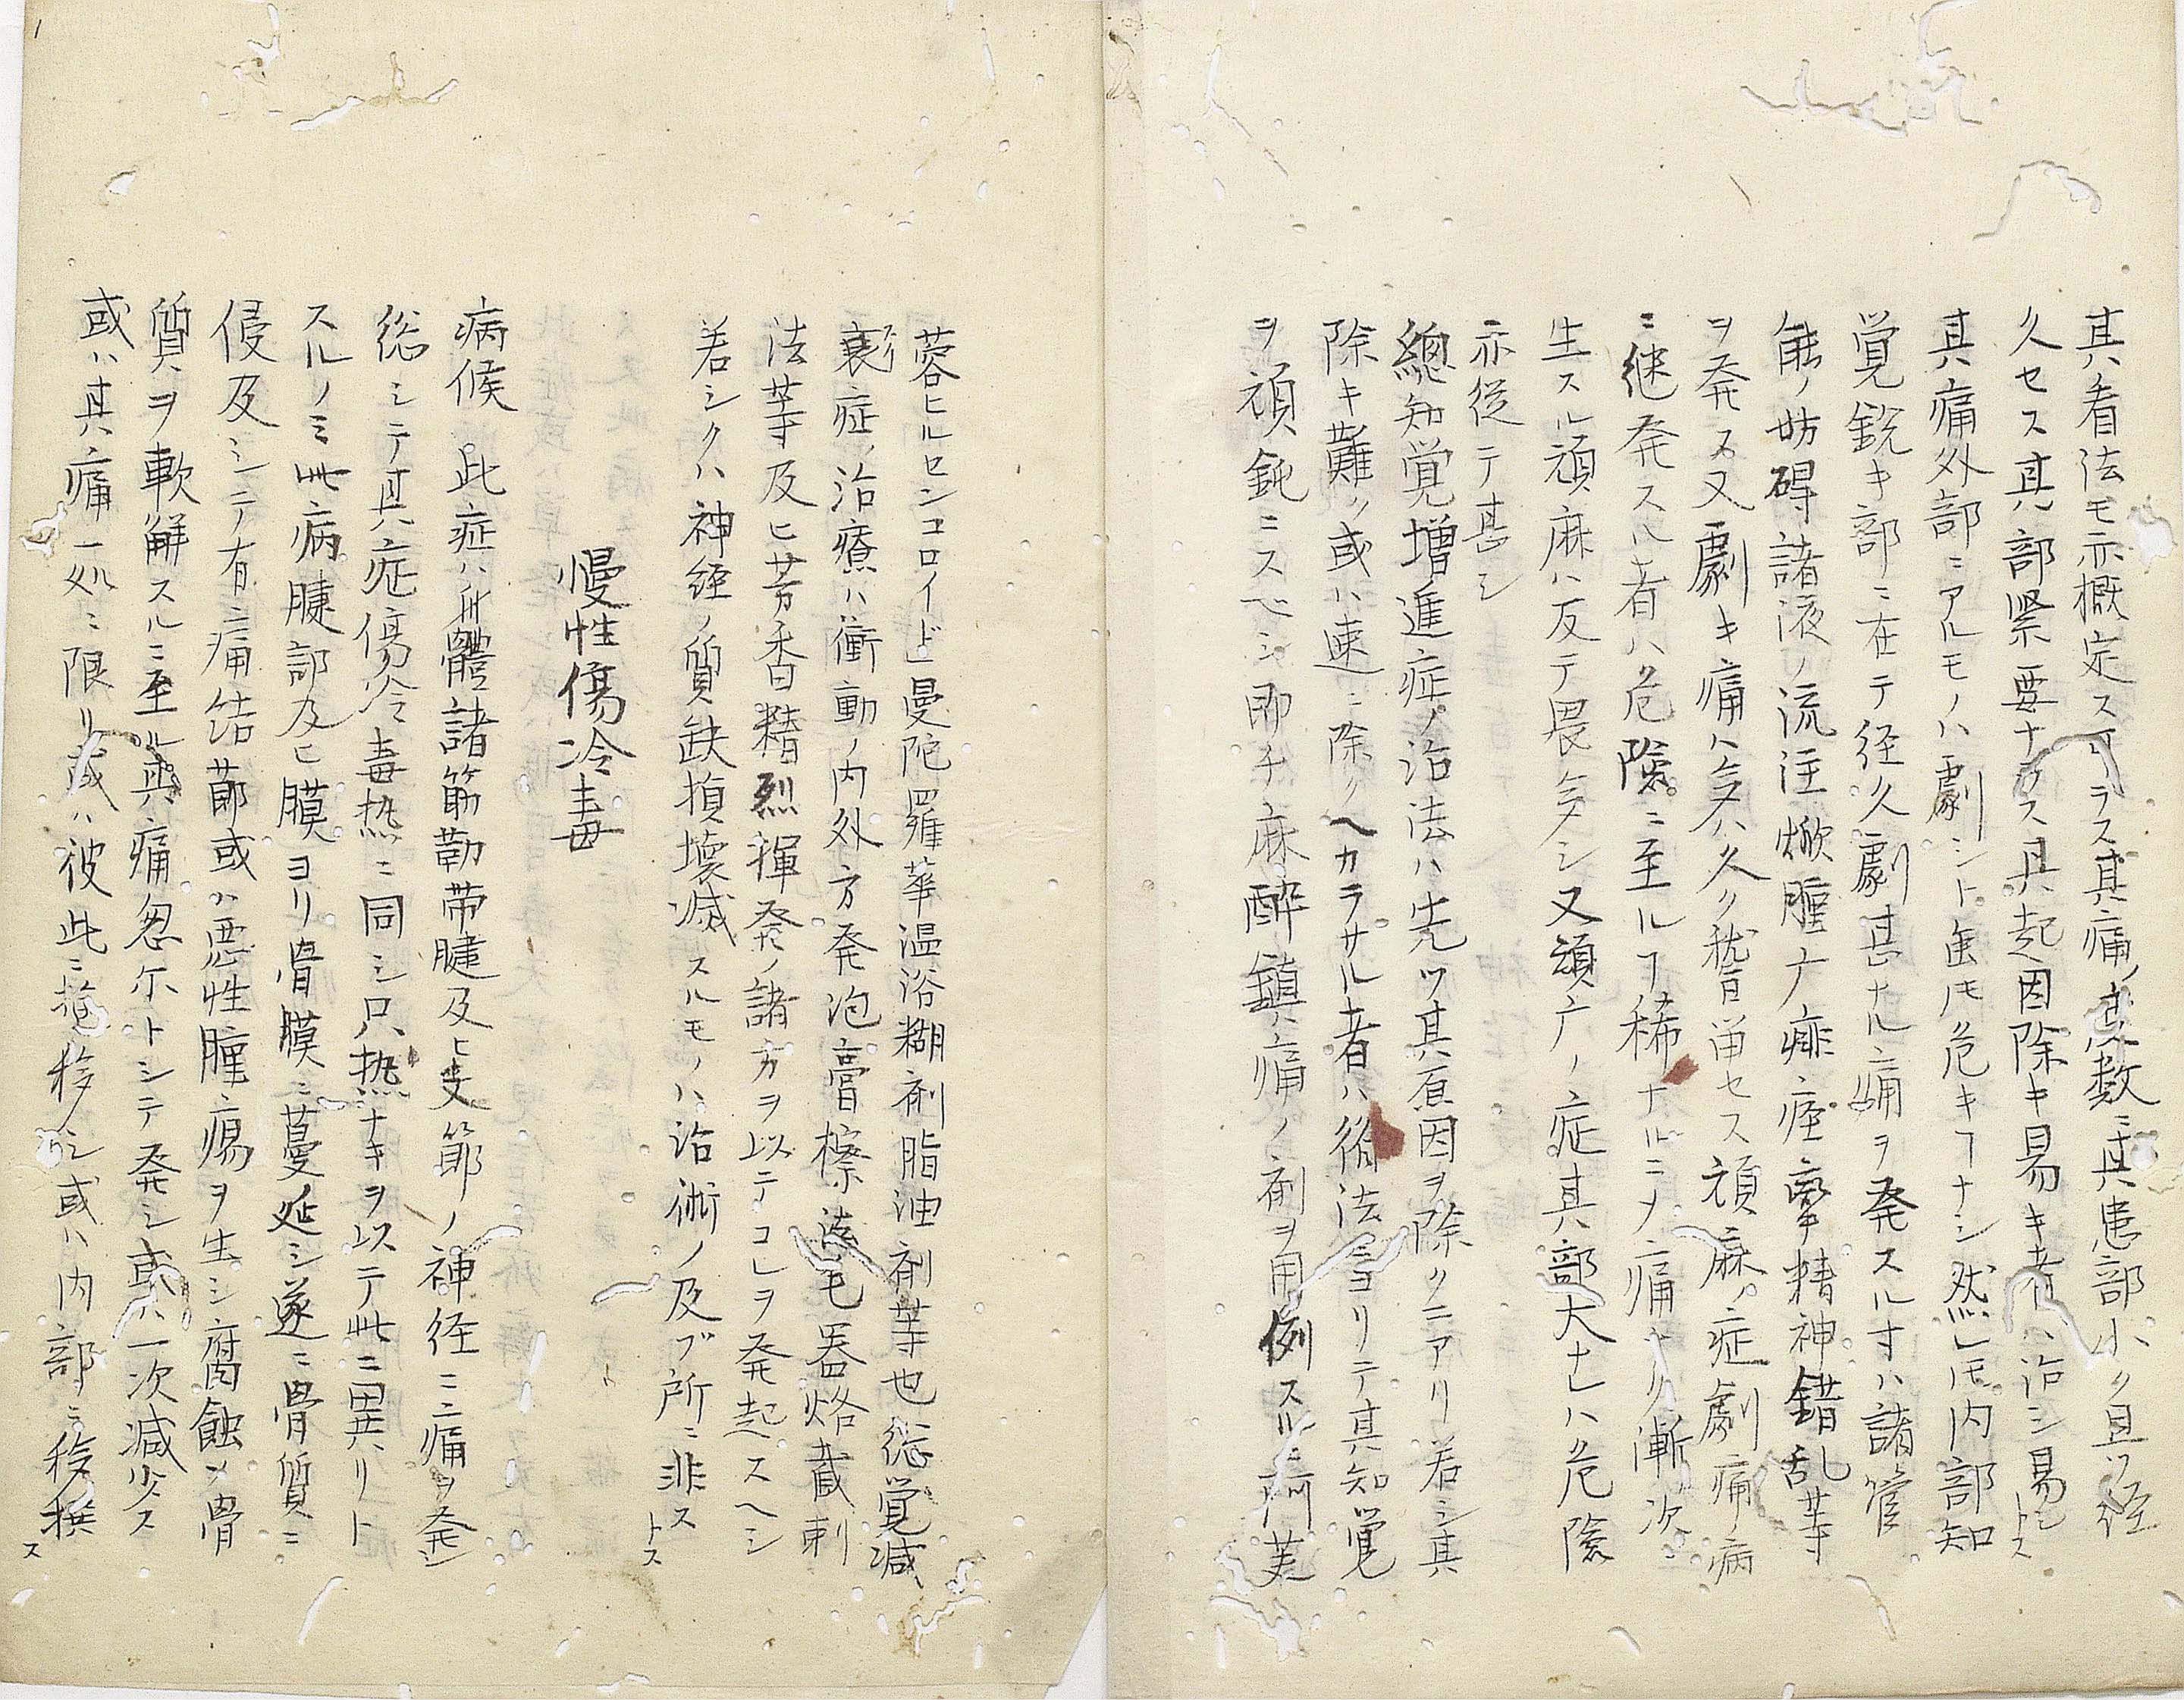 其看法モ亦概定スヘカラス其痛ノ点数ニ其患部小ク且ツ経
久セス其部緊要ナラス且起因除キ易キ者ハ治シ易シトス
其痛外部ニアルモノハ劇シト雖モ危キヿナシ然レ𪜈内部知
覚鋭キ部ニ在テ経久劇甚ナル痛ヲ発スルオハ諸管
能ノ妨碍諸液ノ流注焮腫广痱痙攣精神錯乱等
ヲ発ス又劇キ痛ハ多ハ久ク稽留セス頑麻ノ症劇痛病
ニ継発スル者ハ危険ニ至ルヿ稀ナルニヲ痛ナリ漸次ニ
生スル頑麻ハ反テ畏多シ又頑广ノ症其部大ナレハ危険
亦従テ甚シ
總知覚増進症ノ治法ハ先ツ其原因ヲ除クニアリ若シ其
除キ難ク或ハ速ニ除クヘカラサル者ハ術法ニヨリテ其知覚
ヲ頑鈍ニスベシ即チ麻酔鎮痛ノ剤ヲ用例スルニ芾芙
蓉ヒルセンコロイド」曼陀羅華温浴糊剤脂油剤等也総覚減
衰症ノ治療ハ衝動ノ内外方発泡膏檫法毛器烙蔵刺
法等及ヒ芳香精烈揮発ノ諸方ヲ以テコレヲ発起スヘシ
若シクハ神経ノ質缺損壊滅スルモノハ治術ノ及ブ所ニ非ストス
慢性傷冷毒
病候 此症ハ身體諸筋勒帯腱及ヒ支節ノ神経ニ痛ヲ発シ
総シテ其症傷冷毒热ニ同シ只热ナキヲ以テ此ニ異リト
スルノミ此病腱部及ヒ膜ヨリ骨膜ニ蔓延シ遂ニ骨質ニ
侵及シテ有痛結節或ハ悪性腫瘍ヲ生シ腐蝕メ骨
質ヲ軟解スルニ至ル其痛忽尓トシテ発シ或ハ一次減少ス
或ハ其痛一処ニ限リ或ハ彼此ニ施移シ或ハ内部ニ移撰ス